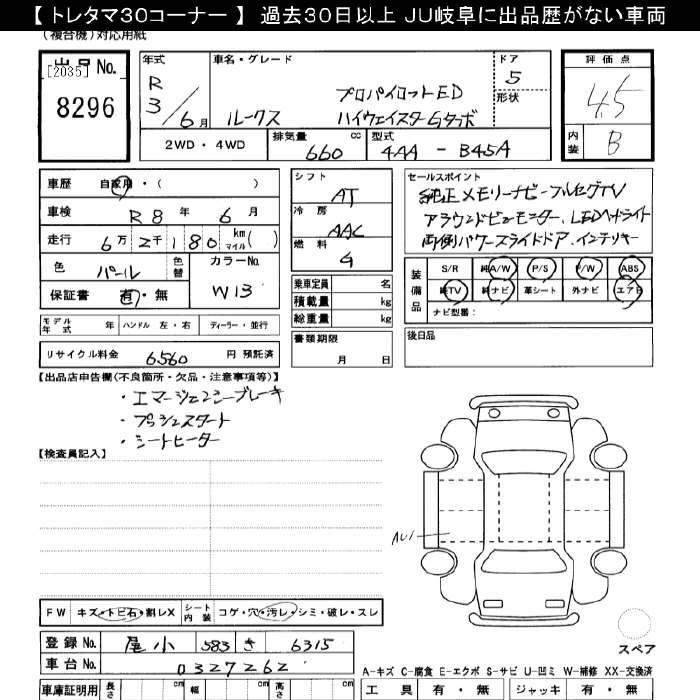 【 トレタマ30コーナー 】 過去30日以上 JU岐阜に出品歴がない車両
(複合機)対応用紙
出品 No.
[2035]
8296
年式
R
3/6月
車名・グレード
プロパイロットED
ルークス ハイウェイスターGターボ
ドア
5
形状
評価点
4.5
内装
B
2WD・4WD
排気量 cc
660
型式
4AA - B45A
車歴 自家用・( )
車検 R8年 6月
走行 6万2千180 km マイル( )
色 パール 色替
カラーNo.
W13
保証書 有・無
シフト
AT
冷房
AAC
燃料
G
乗車定員 名
積載量 kg
総重量 kg
書類期限
月 日
セールスポイント
純正メモリーナビ-フルセグTV
アラウンドビューモニター、LEDヘッドライト
両側パワースライドドア、インテリキー
装備品
S/R 純A/W P/S P/W ABS
純TV 純ナビ 革シート 外ナビ エアB
ナビ型番:
後日品
モデル年式 年 ハンドル 左・右 ディーラー・並行
リサイクル料金 6,560 円 預託済
【出品店申告欄(不良箇所・欠品・注意事項等)】
・エマージェンシーブレーキ
・プッシュスタート
・シートヒーター
【検査員記入】
AU1
FW キズ・トビ石・割レX シート内装 コゲ・穴・汚レ・シミ・破レ・スレ
登録No. 尾小 583 き 6315
車台No. 0327262
スペア
A-キズ C-腐食 E-エクボ S-サビ U-凹ミ W-補修 XX-交換済
車庫証明用 長さ cm 幅 cm 高さ cm
工具 有・無 ジャッキ 有・無